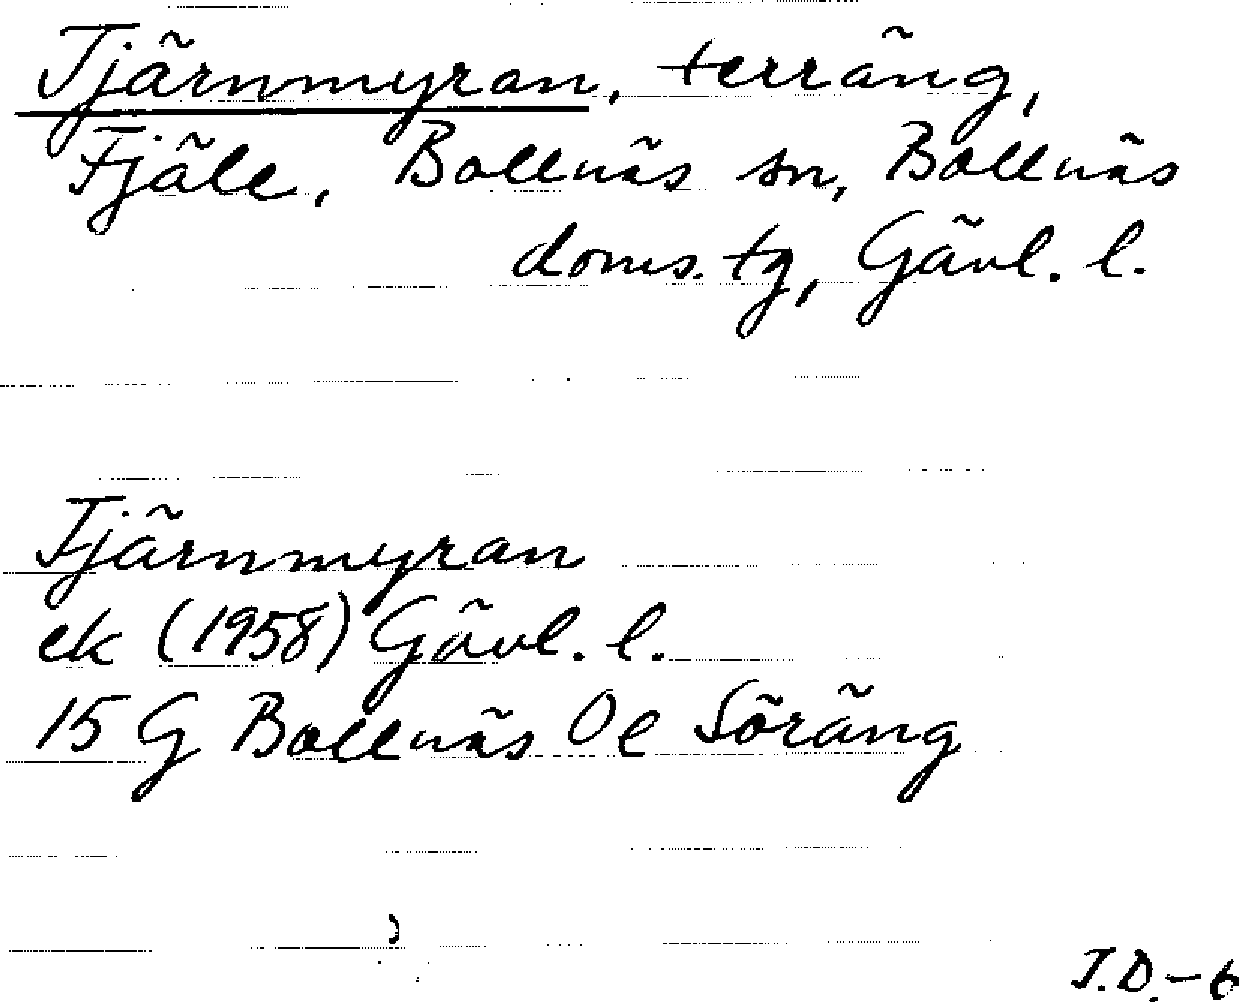 Tjärnmyran, terräng,
Fjäle, Bollnäs sn, Bollnäs
doms. tg, Gävl. l.
Tjärnmyran
ek (1958) Gävl. l.
15 G Bollnäs 0 e Söräng